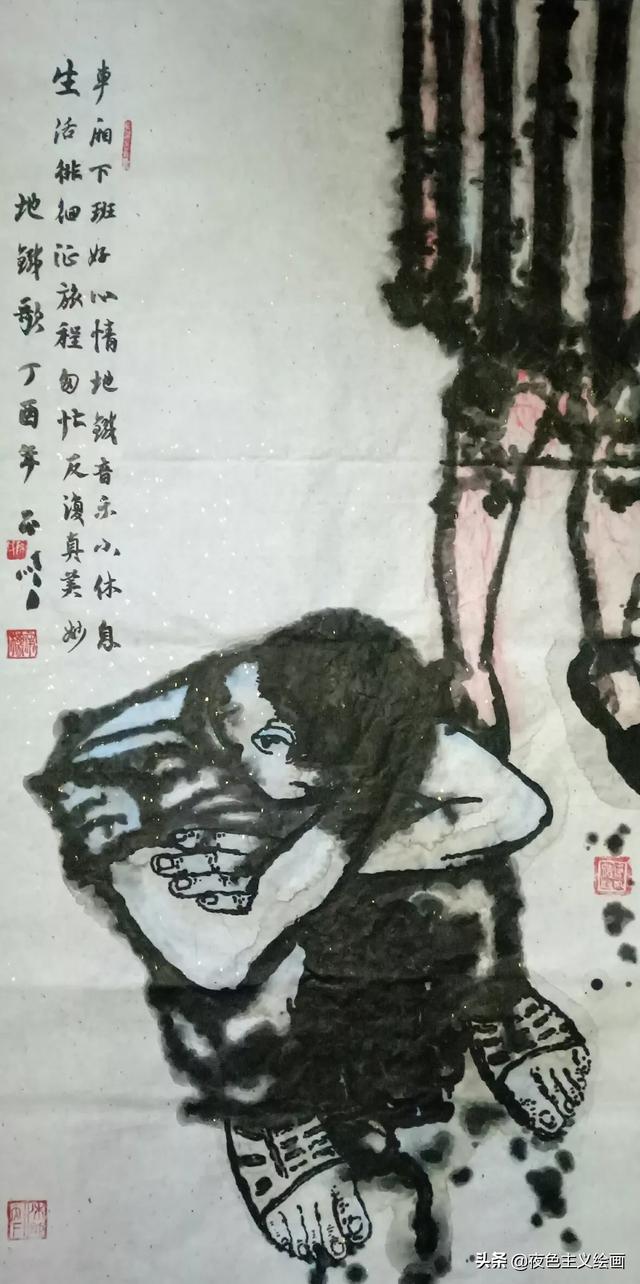 車厢下班好心情地鐵音乐小休息
生活徘徊征旅程匆忙反復真美妙
地鐵歌 丁酉年
头条 @夜色主义绘画